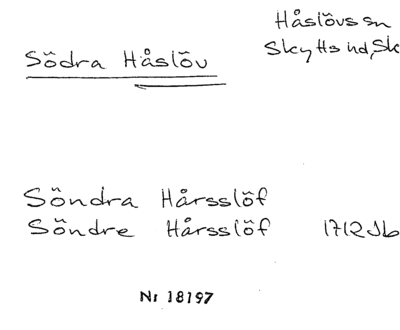 Håslövs sn
Skytts hd, Sk
Södra Håslöv
Söndra Hårsslöf
Söndre Hårsslöf 1712 Jb
Nr 18197